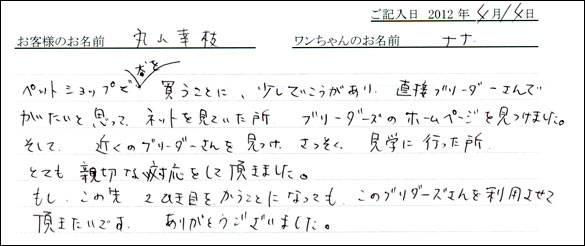 ご記入日 2012年 4月14日
お客様のお名前 丸山幸枝 ワンちゃんのお名前 ナナ
ペットショップで犬を買うことに、少していこうがあり、直接ブリーダーさんで
がたいと思って、ネットを見ていた所 ブリーダーズのホームページを見つけました。
そして、近くのブリーダーさんを見つけ、さっそく、見学に行った所、
とても親切な対応をして頂きました。
もし、この先 2匹目をかうことになっても、このブリダーズさんを利用させて
頂きたいです。ありがとうございました。